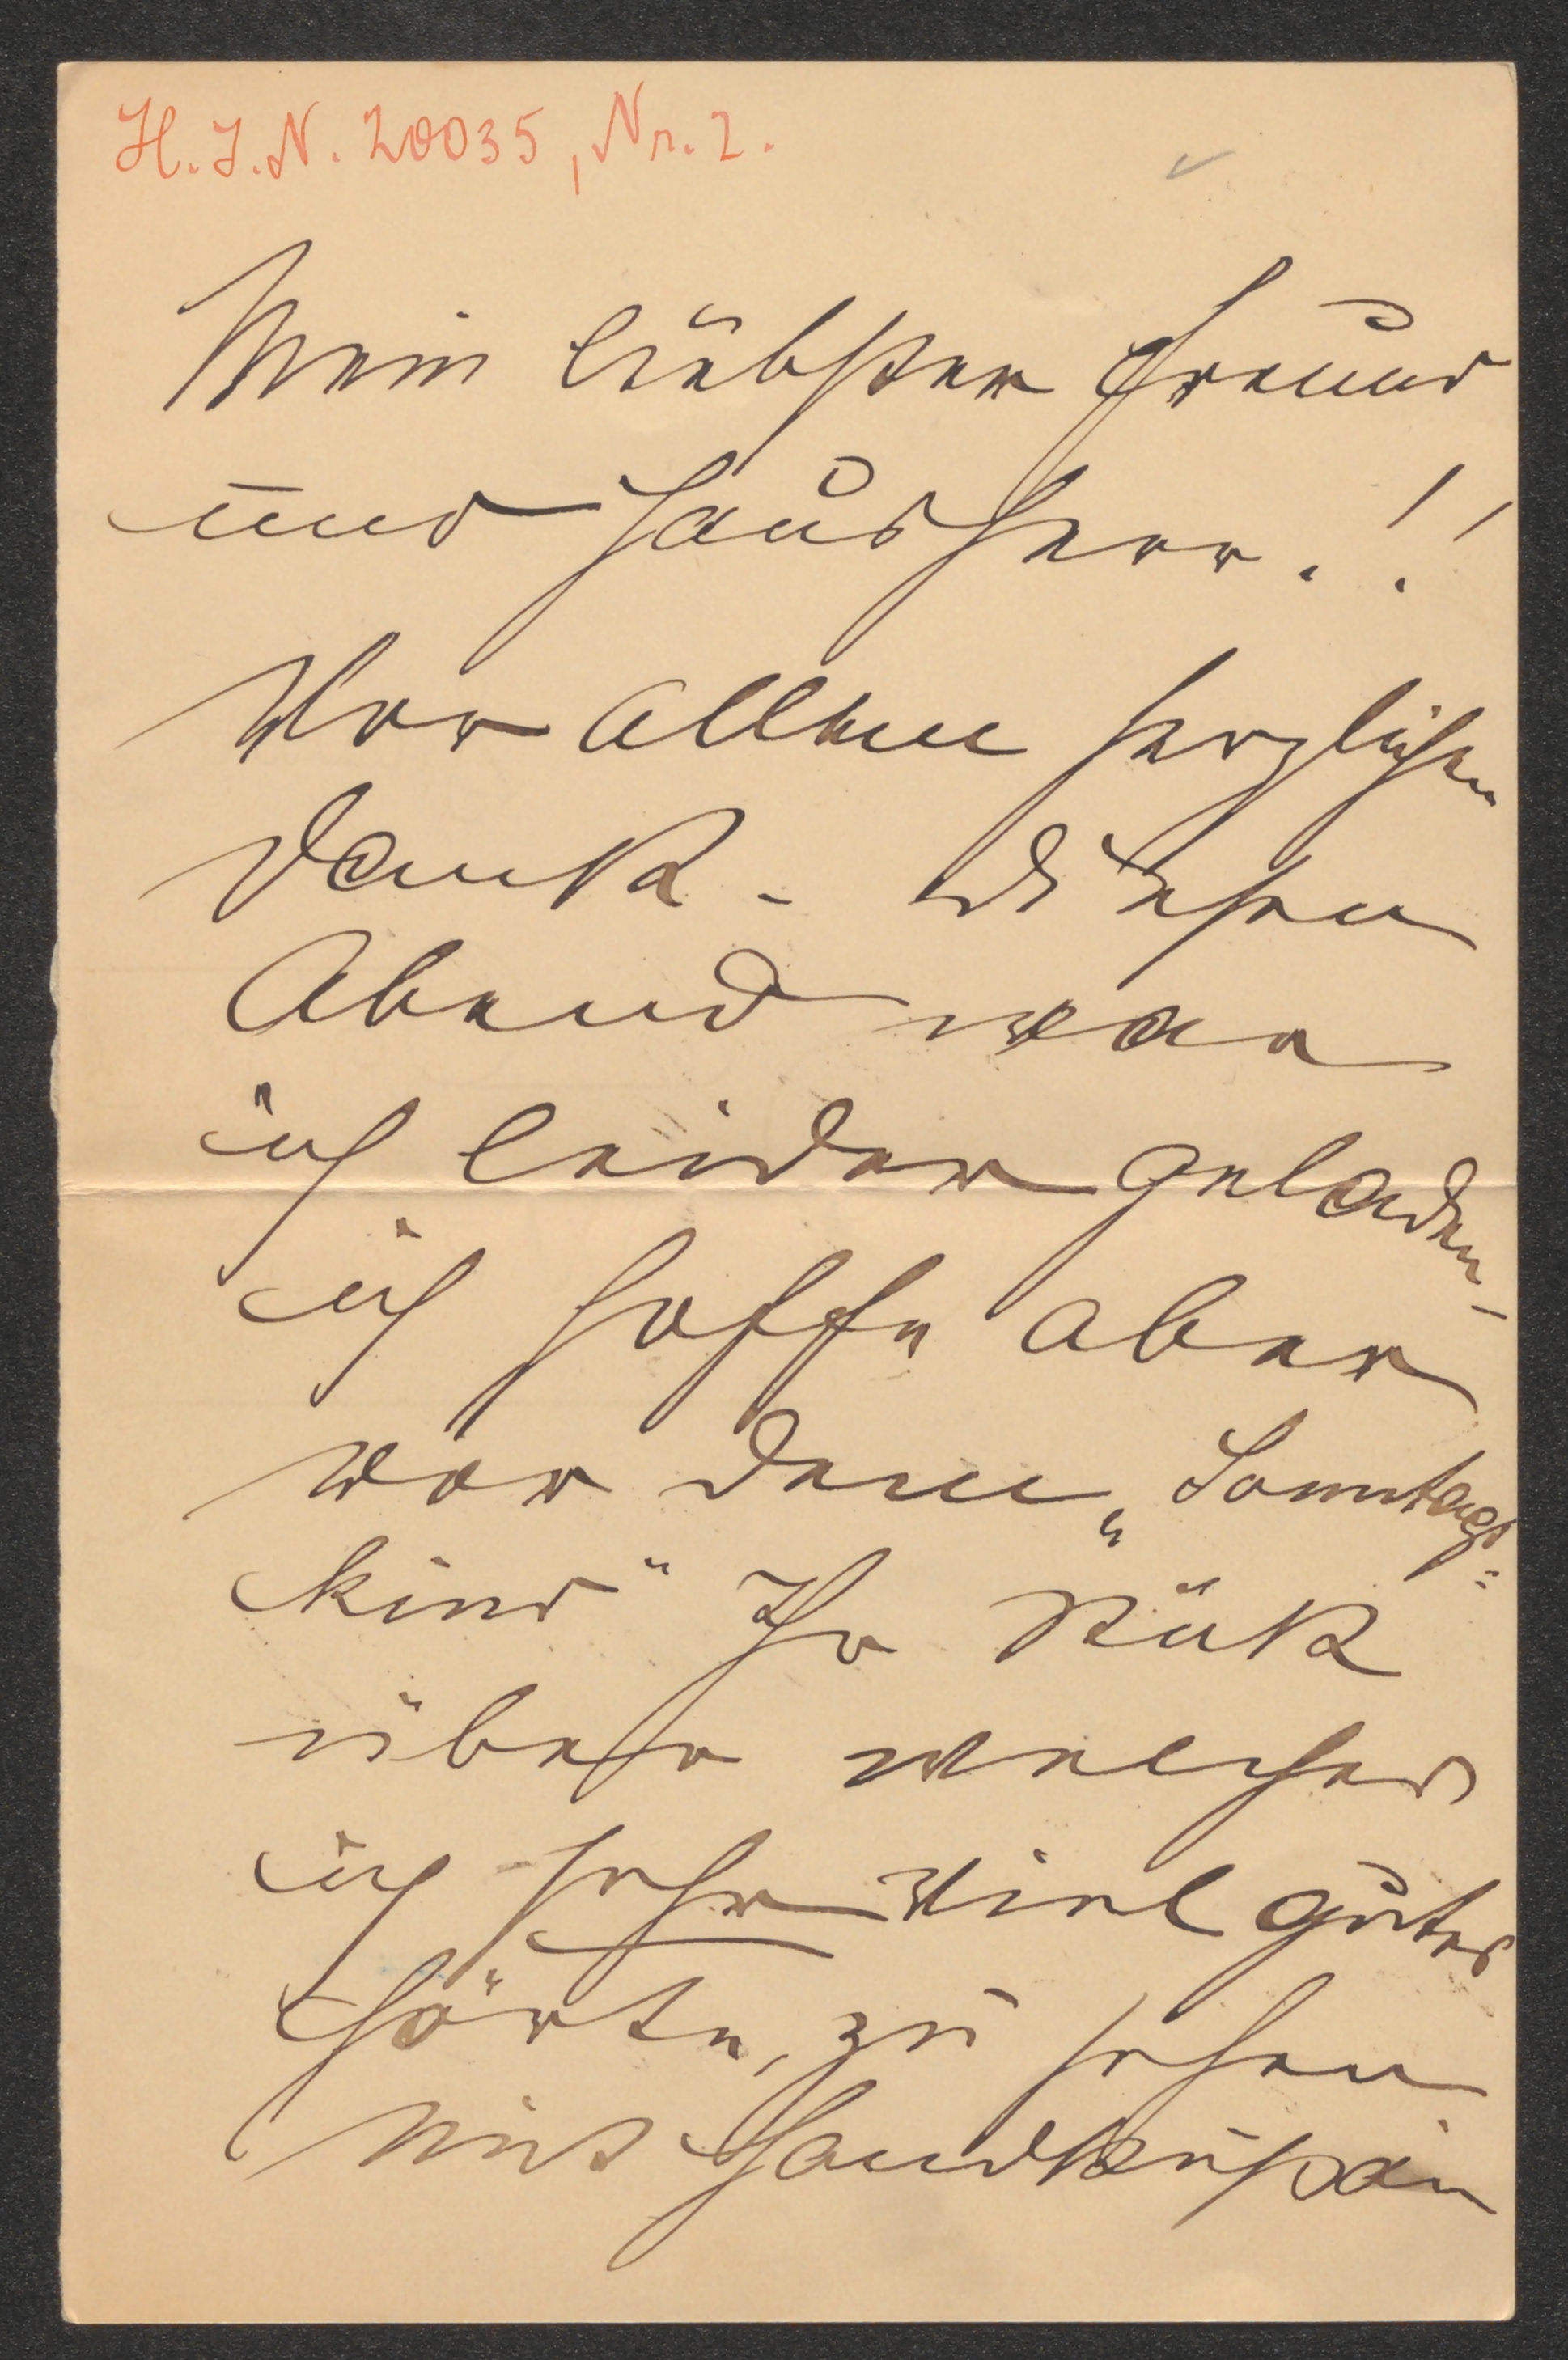 H.I.N. 20035, Nr. 2.
Mein liebster Freund
und Hausherr.!!
Vor Allem herzlichen
Dank - diesen
Abend war
ich leider geladen -
ich hoffe aber
vor dem „Sonntags=
kind" Ihr Stück
über welches
ich sehr viel gutes
hörte, zu sehen
Mit Handkuss an